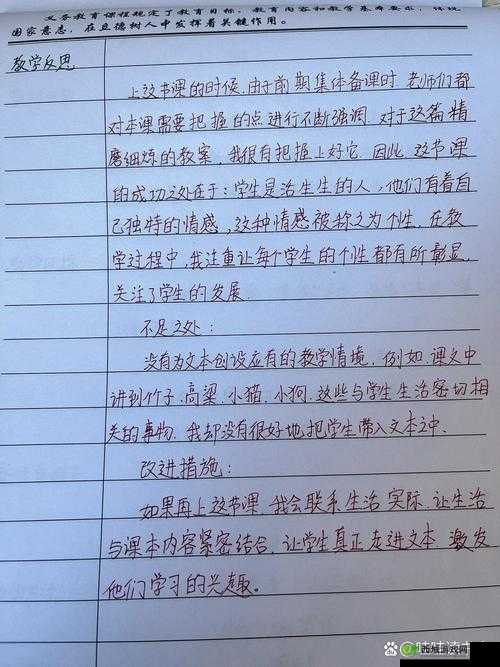 义务教育课程规定了教育目标，教育内容和教学基本要求，体现
国家意志，在立德树人中发挥着关键作用。
教学反思
上这节课的时候，由于前期集体备课时，老师们都
对本课需要把握的点进行不断强调，对于这篇精
磨细炼的教案，我很有把握上好它，因此，这节课
的成功之处在于：学生是活生生的人，他们有着自
己独特的情感，这种情感被称之为个性，在教
学过程中，我注重让每个学生的个性都有所彰显，
关注了学生的发展。
不足之处：
没有为文本创设应有的教学情境，例如，课文中
讲到竹子、高粱、小猫、小狗，这些与学生生活密切相
关的事物，我却没有很好地把学生带入文本之中。
改进措施：
如果再上这节课，我会联系生活实际，让生活
与课本内容紧密结合，让学生真正走进文本，激发
他们学习的兴趣。
西城游戏网